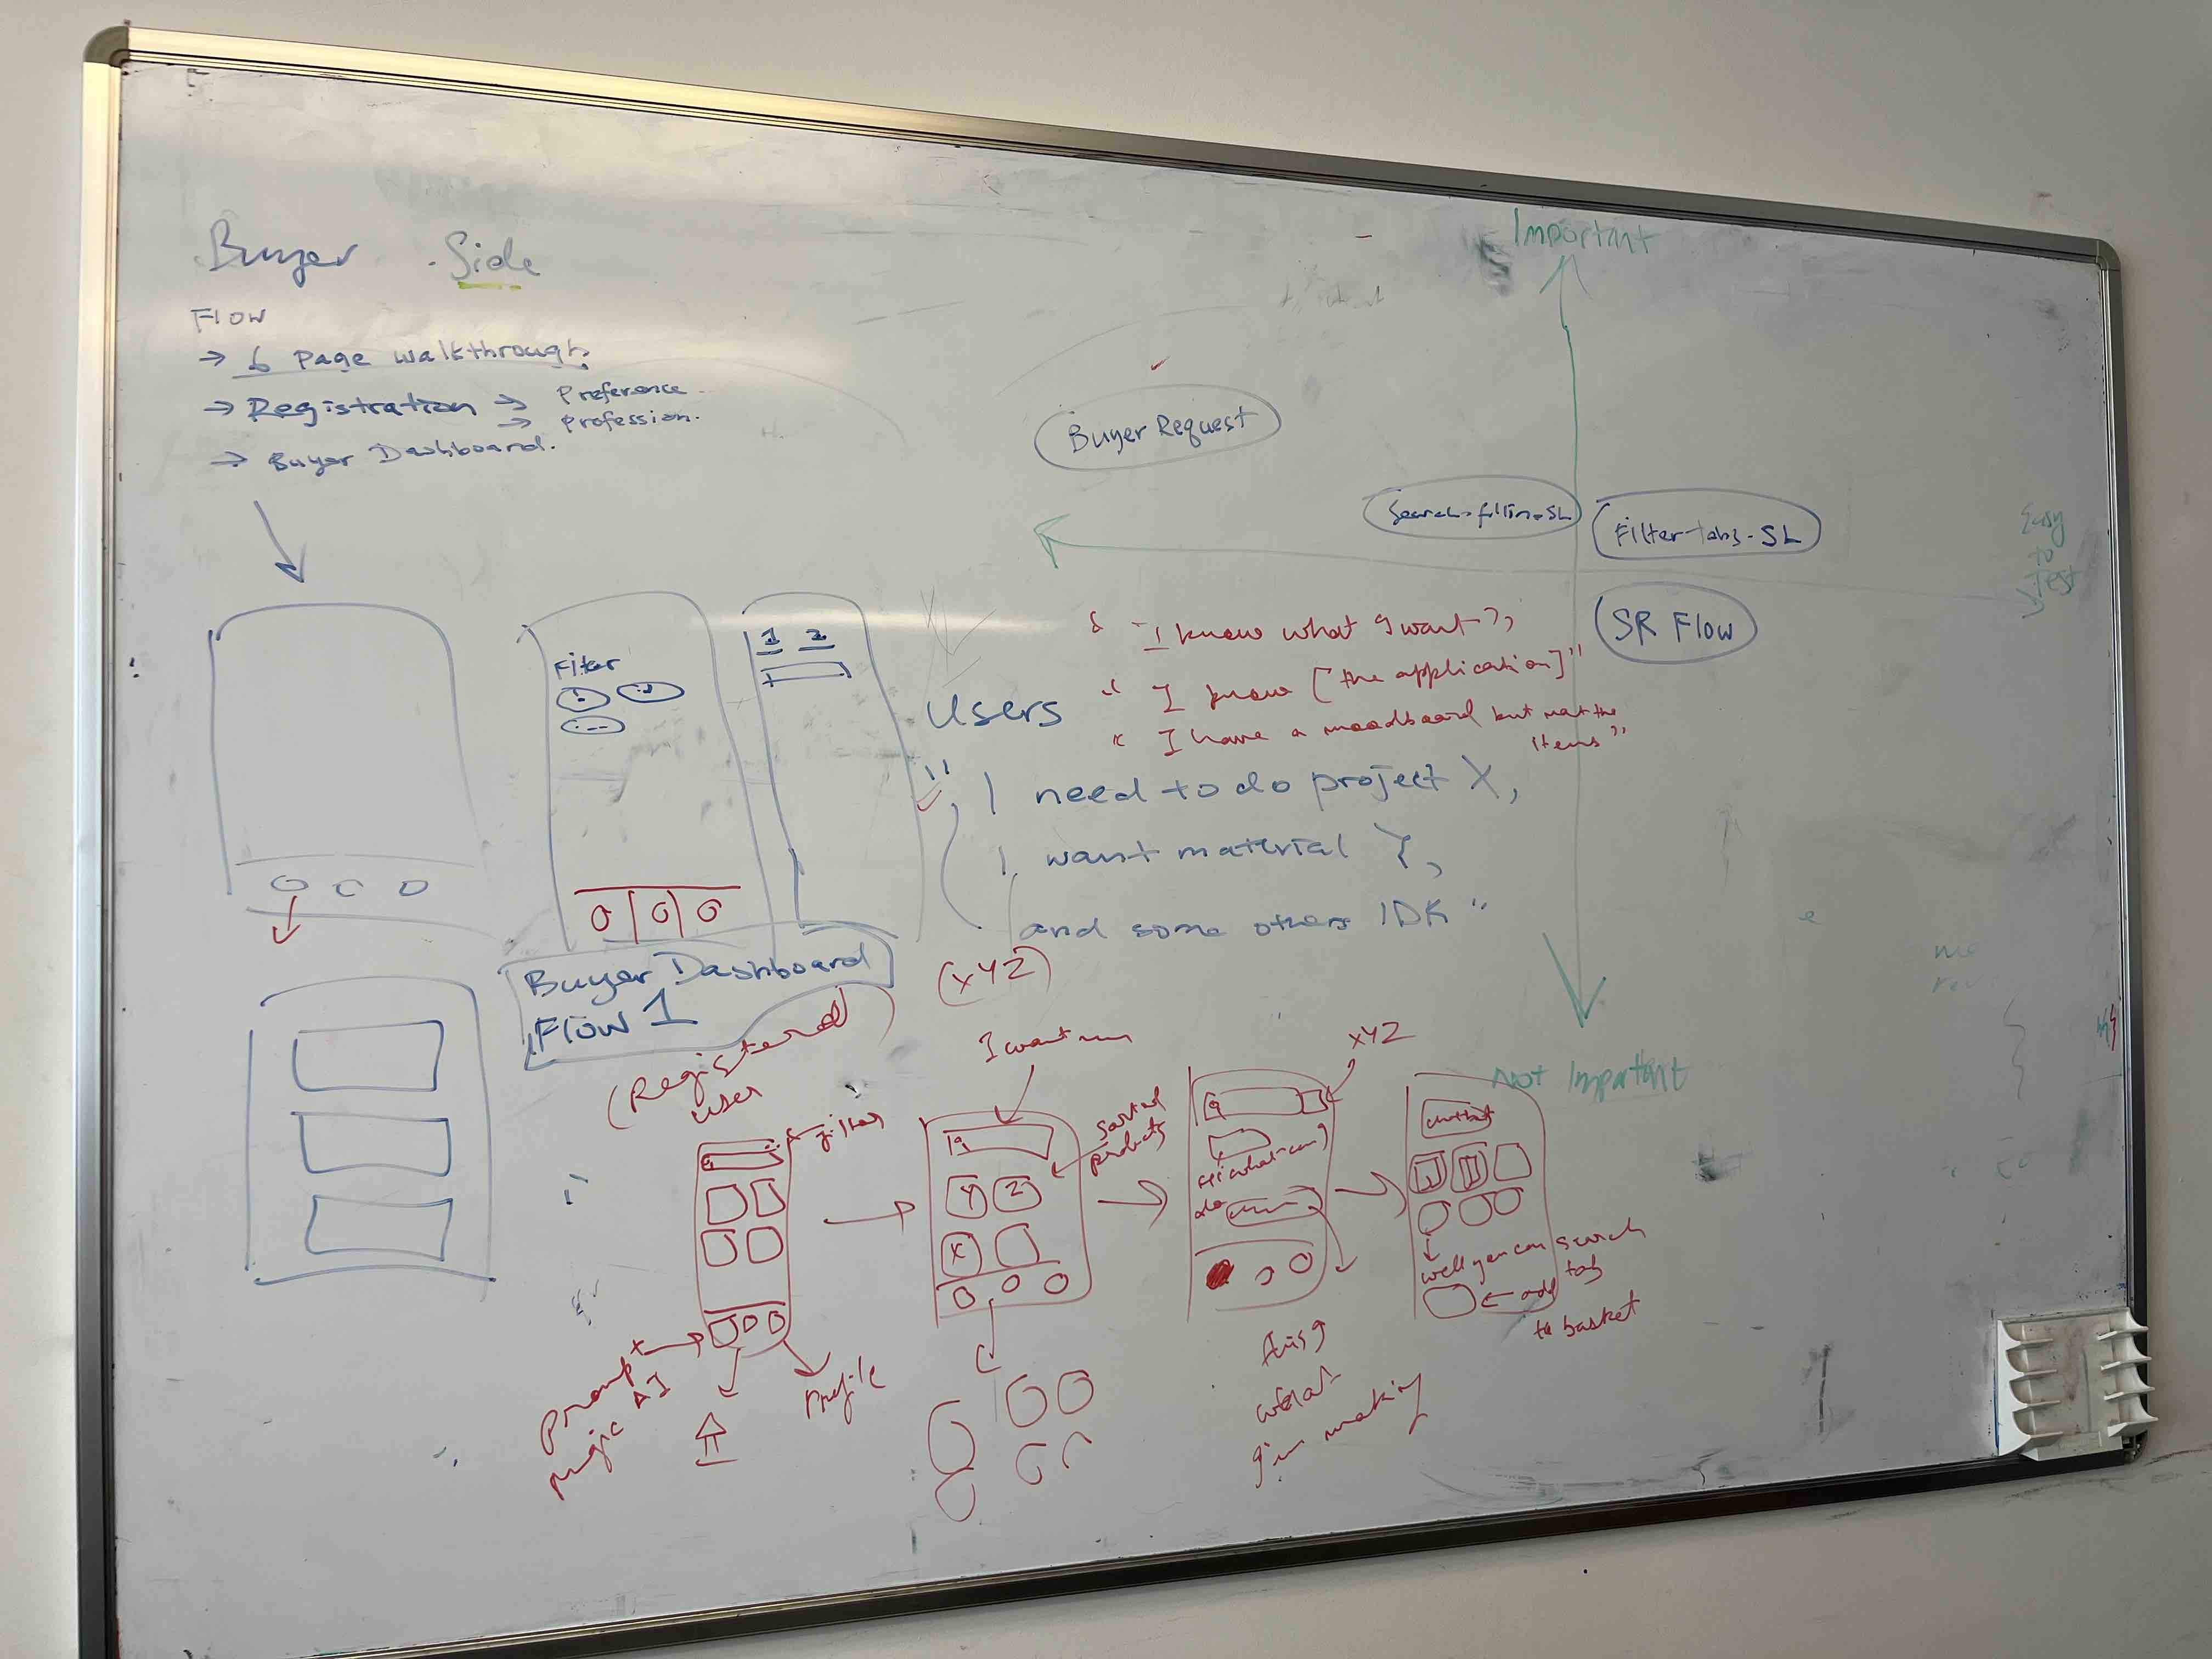 Buyer Side
Flow
→ 6 Page walkthrough
→ Registration → Preference
→ Profession.
→ Buyer Dashboard.
Important
Buyer Request
Filter-tabs-SL
SR Flow
Easy
to
test
Not Important
Filter
1 2
Users
"I know what I want"
"I know [the application]"
"I have a moodboard but not the
items"
"I need to do project X,
I want material Y,
and some others IDK"
(XYZ)
Buyer Dashboard
Flow 1
(Registered
user
filter
prompt
magic AI
Profile
I want
sorted
products
Y Z
X
XYZ
this is
what
I'm making
well you can search
add
to basket